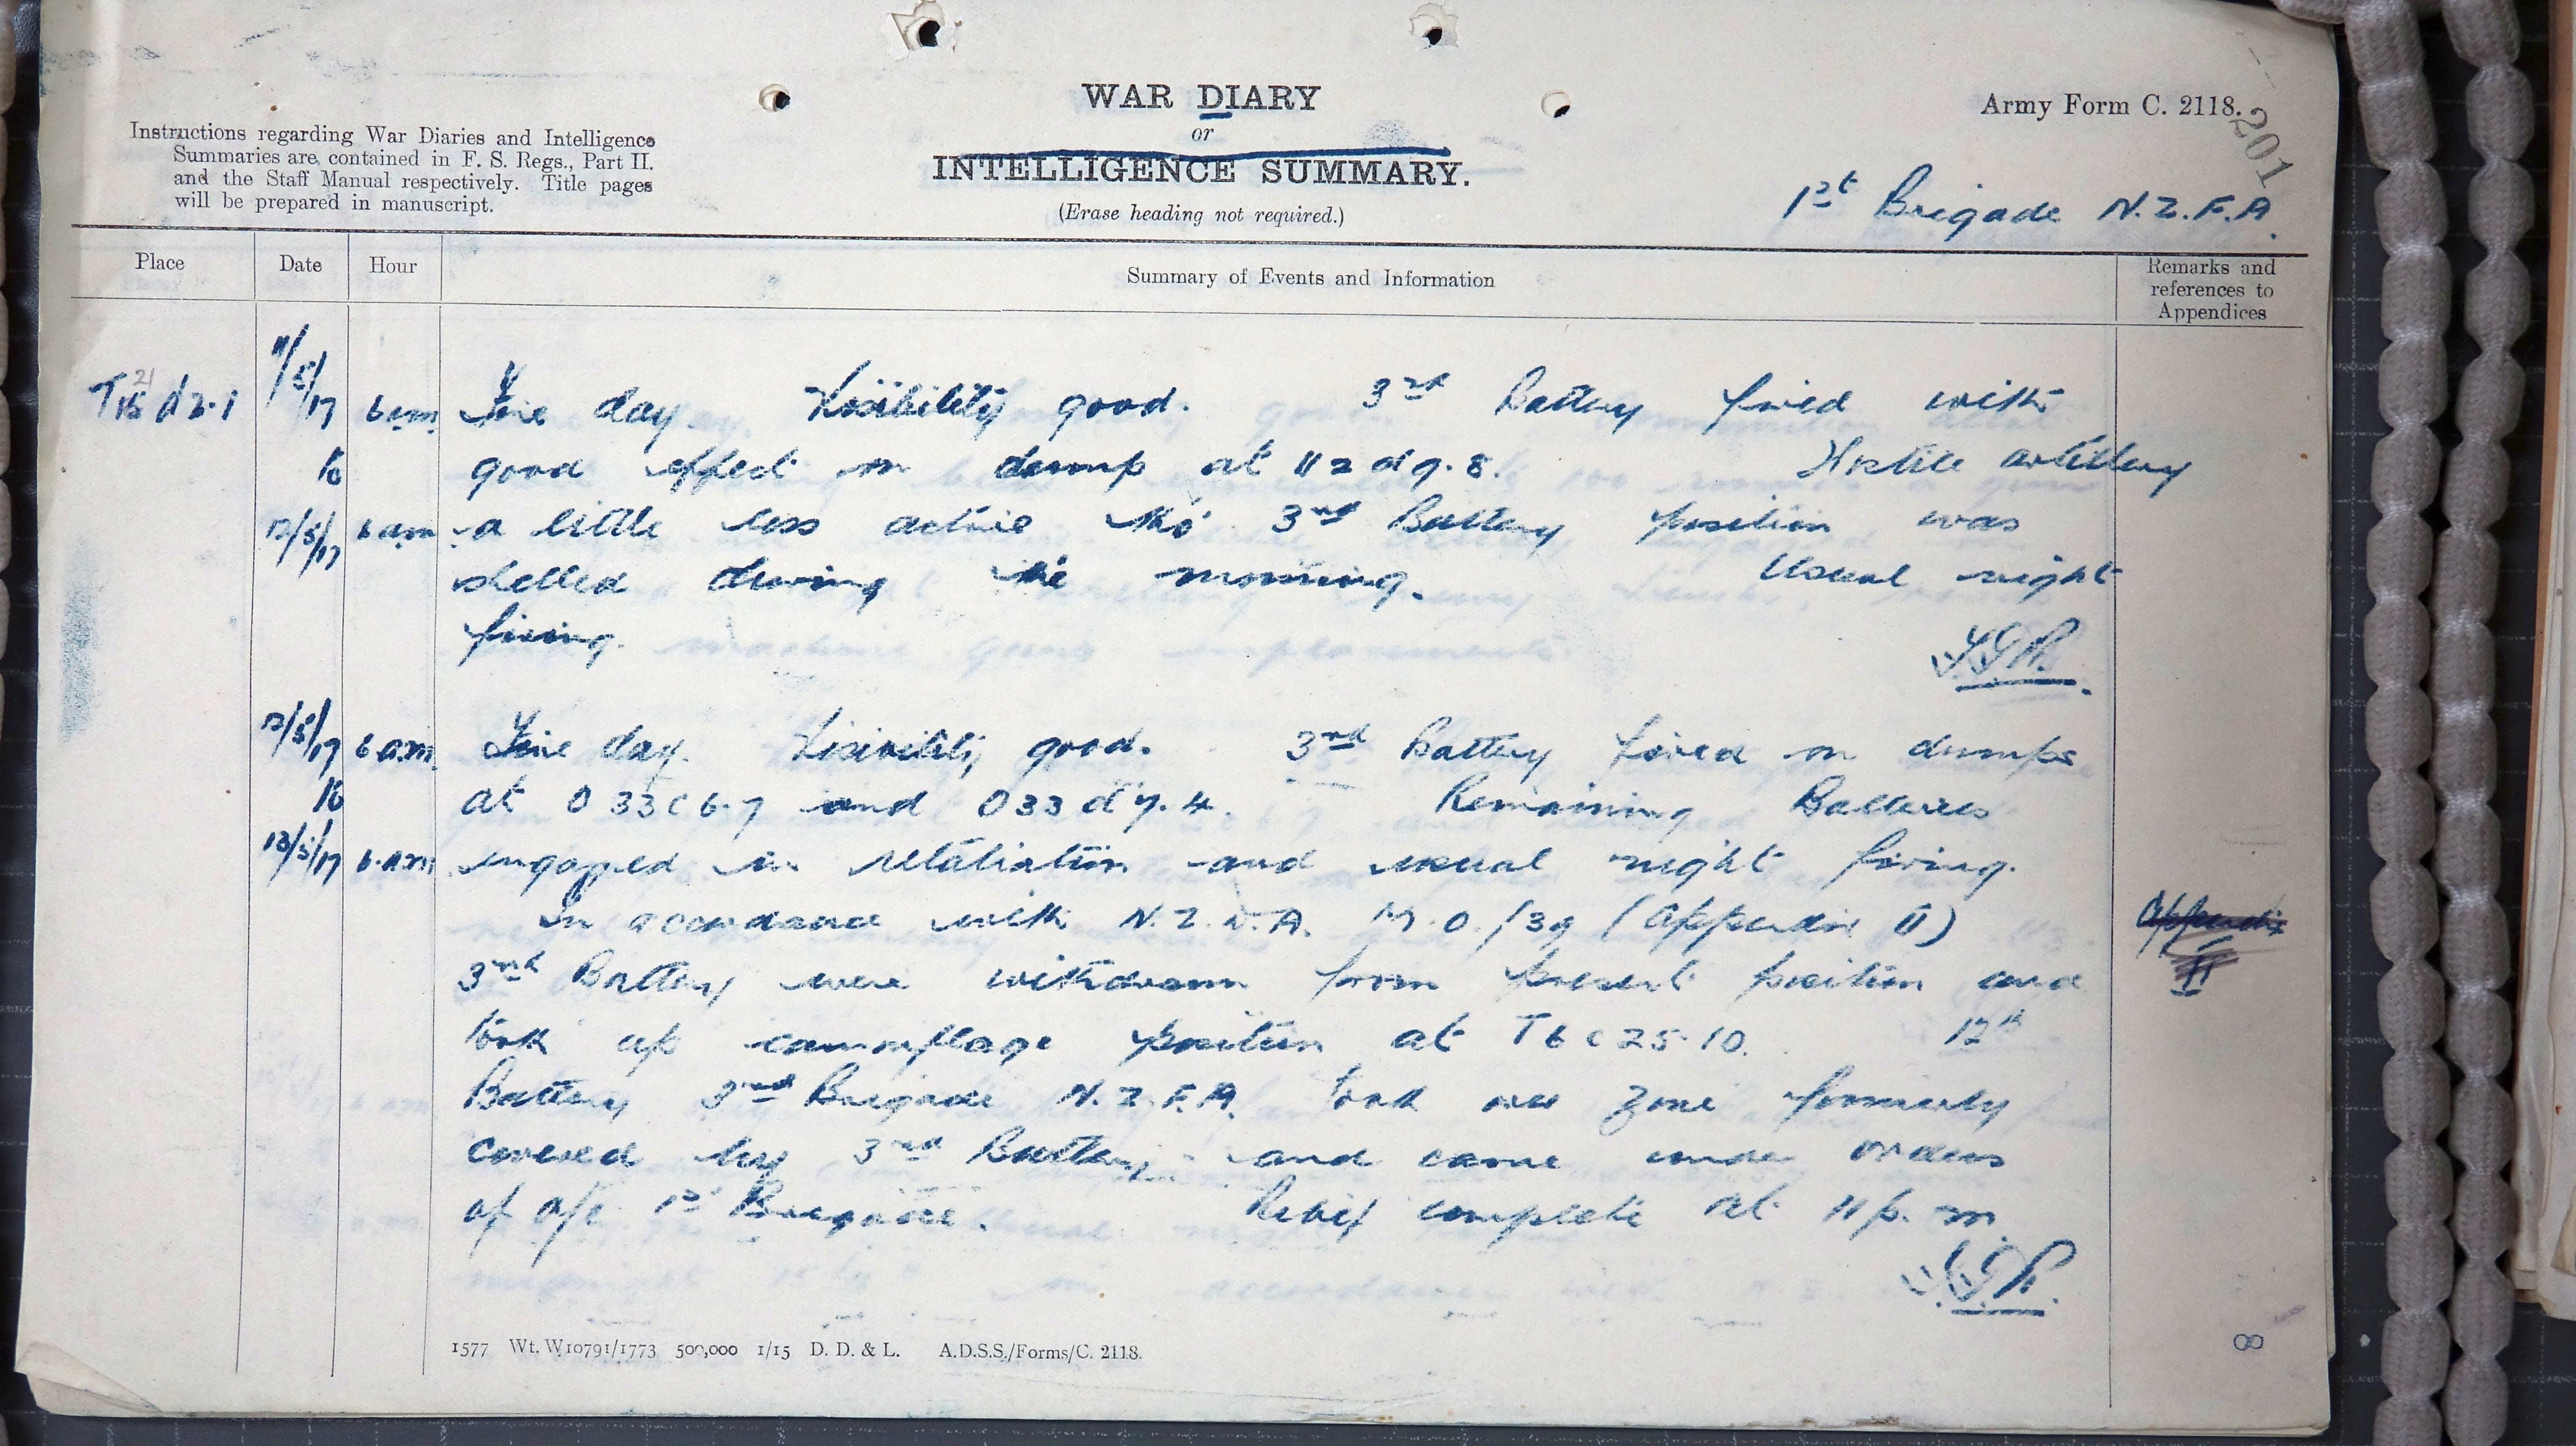 WAR DIARY
or
INTELLIGENCE SUMMARY.
(Erase heading not required.)
Instructions regarding War Diaries and Intelligence
Summaries are contained in F. S. Regs., Part II.
and the Staff Manual respectively. Title pages
will be prepared in manuscript.
Army Form C. 2118.
201
1st Brigade N.Z.F.A.
Place Date Hour Summary of Events and Information Remarks and references to Appendices
11/5/17 6 am Fine day Visibility good. 3rd Battery fired with
to good effect on dump at U2d9.8. Hostile artillery
12/5/17 6 am a little less active tho' 3rd Battery position was
shelled during the morning. Usual night
firing.
12/5/17 6 a.m. Fine day. Visibility good. 3rd Battery fired on dumps
to at O33c6.7 and O33d7.4. Remaining Batteries
13/5/17 6.am engaged in retaliation and usual night firing.
In accordance with N.Z.D.A. M.O./39 (Appendix II) Appendix II
3rd Battery were withdrawn from present position and
took up camouflage position at T6c25.10. 12th
Battery Brigade N.Z.F.A. took over zone formerly
covered by 3rd Battery and came under orders
of o/c 1st Brigade. Relief complete at 11 p.m
1577 Wt. W10791/1773 500,000 1/15 D. D. & L. A.D.S.S./Forms/C. 2118.
8